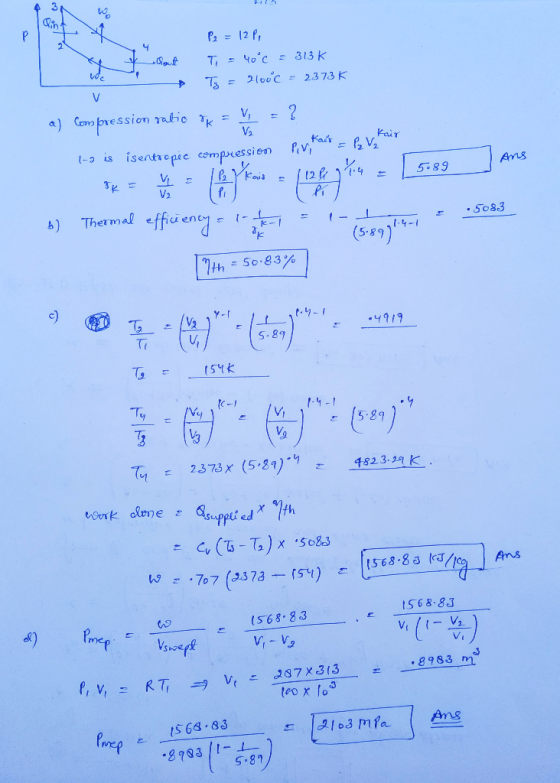 3
P
Qin
W₀
2
4
Qout
Wc
1
V
P₂ = 12 P₁
T₁ = 40°C = 313 K
T₃ = 2100°C = 2373 K
a) Compression ratio r_K = V₁/V₂ = ?
1-2 is isentropic compression P₁V₁^Kair = P₂V₂^Kair
r_K = V₁/V₂ = (P₂/P₁)^1/Kair = (12P₁/P₁)^1/1.4 = 5.89 Ans
b) Thermal efficiency = 1 - 1/r_K^K-1 = 1 - 1/(5.89)^1.4-1 = .5083
η_th = 50.83%
c) T₂/T₁ = (V₂/V₁)^γ-1 = (1/5.89)^1.4-1 = .4919
T₂ = 154 K
T₄/T₃ = (V₄/V₃)^K-1 = (V₁/V₂)^1.4-1 = (5.89)^.4
T₄ = 2373 × (5.89)^.4 = 4823.29 K.
work done = Qsupplied × η_th
= Cv (T₃ - T₂) × .5083
W = .707 (2373 - 154) = 1568.83 KJ/Kg Ans
d) Pmep = w/Vswept = 1568.83/V₁ - V₂ . = 1568.83/V₁(1 - V₂/V₁)
P₁V₁ = RT₁ ⇒ V₁ = 287 × 313/100 × 10³ = .8983 m³
Pmep = 1568.83/.8983(1 - 1/5.89) = 2103 MPa Ans